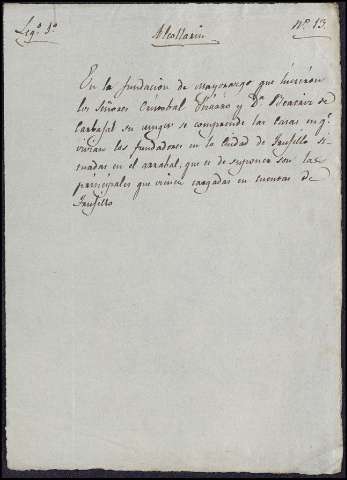 Leg.º 3º
Alcollarin
Nº 13.
En la fundacion de mayorazgo que hicieron
los Señores Cristobal Pizarro y Dª Beatriz de
Carbajal su muger se comprende las casas en q.e
vivian los fundadores en la ciudad de Trujillo si-
tuadas en el arrabal, que es de suponer son las
principales que vienen cargadas en cuentas de
Trujillo